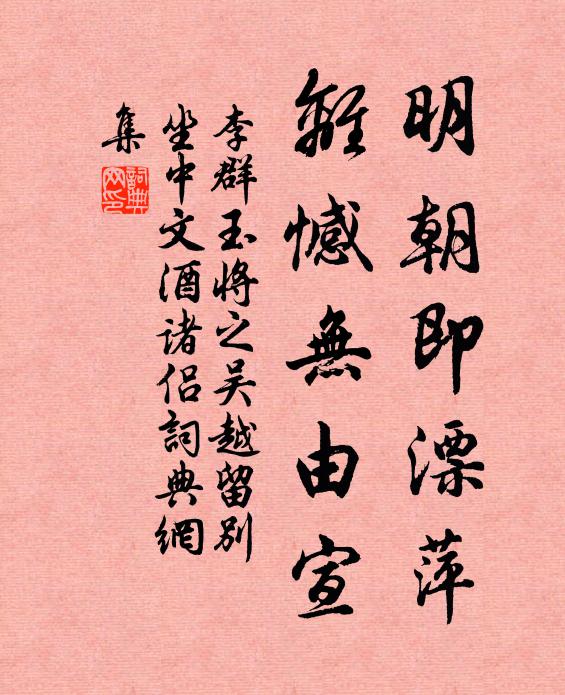 明朝即漂萍
離憾無由宣
李群玉将之吴越留别
坐中文酒诸侣詞典網
集
詞典
网印